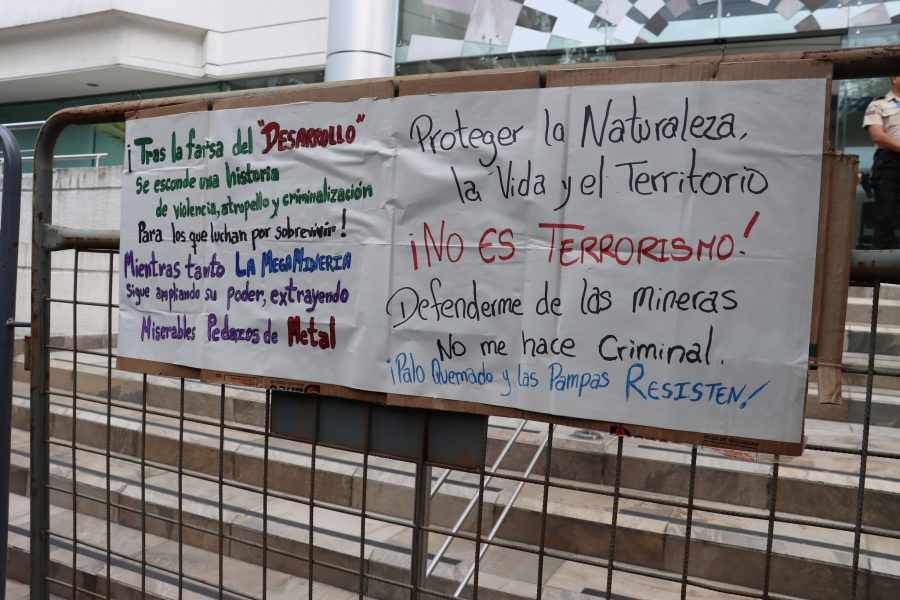 ¡Tras la farsa del "DESARROLLO"
se esconde una historia
de violencia, atropello y criminalización
Para los que luchan por sobrevivir!
Mientras tanto LA MEGAMINERIA
Sigue ampliando su poder, extrayendo
Miserables Pedazos de Metal
Proteger la Naturaleza,
la Vida y el Territorio
¡NO ES TERRORISMO!
Defenderme de las mineras
No me hace Criminal.
¡Palo Quemado y las Pampas RESISTEN!